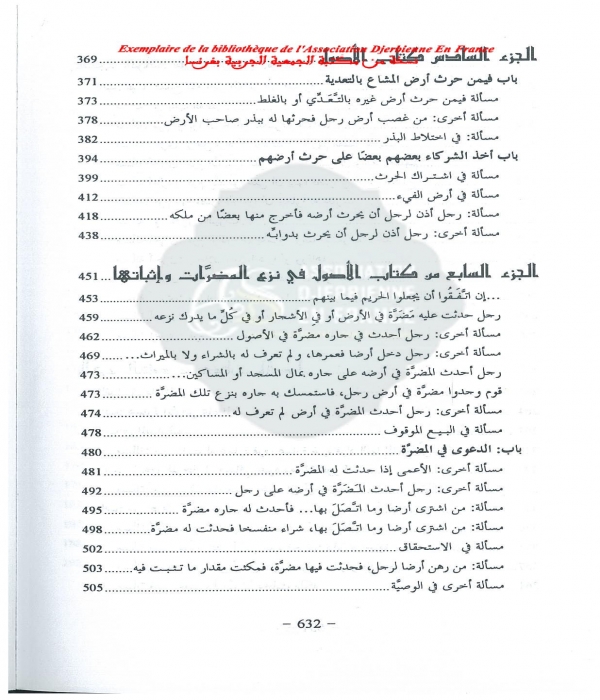 Exemplaire de la bibliothèque de l'Association Djerbienne En France
الجزء السادس من كتاب الأصول 369
باب فيمن حرث أرض المشاع بالتعدية 371
مسألة فيمن حرث أرض غيره بالتَّعَدِّي أو بالغلط 373
مسألة أخرى: من غصب أرض رجل فحرثها له ببذر صاحب الأرض 378
مسألة: في اختلاط البذر 382
باب أخذ الشركاء بعضهم بعضا على حرث أرضهم 394
مسألة في اشتراك الحرث 399
مسألة في أرض الفيء 412
مسألة: رجل أذن لرجل أن يحرث أرضه فأخرج منها بعضا من ملكه 418
مسألة: رجل أذن لرجل أن يحرث بدوابّه 438
الجزء السابع من كتاب الأصول في نزع المضرَّات وإثباتها 451
...إن اتَّفَقُوا أن يجعلوا الحريم فيما بينهم 453
رجل حدثت عليه مَضَرَّة في الأرض أو في الأشجار أو في كُلِّ ما يدرك نزعه 459
مسألة أخرى: رجل أحدث في جاره مضرَّة في الأصول 462
مسألة أخرى: رجل دخل أرضا فعمرها، ولم تعرف له بالشراء ولا بالميراث... 469
رجل أحدث المضرَّة في أرضه على جاره بمال المسجد أو المساكين... 473
قوم وجدوا مضرَّة في أرض رجل، فاستمسك به جاره بنزع تلك المضرَّة 473
مسألة أخرى: رجل أحدث المضرَّة في أرض لم تعرف له 474
مسألة في البيع الموقوف 478
باب: الدعوى في المضرَّة 480
مسألة أخرى: الأعمى إذا حدثت له المضرَّة 481
مسألة أخرى: رجل أحدث المَضَرَّة في أرضه على رجل 492
مسألة: من اشترى أرضا وما اتَّصَلَ بها... فأحدث له جاره مضرَّة 495
مسألة: من اشترى أرضا وما اتَّصَلَ بها، شراء منفسخا فحدثت له مضرَّة 498
مسألة في الاستحقاق 502
مسألة: من رهن أرضا لرجل، فحدثت فيها مضرَّة، فمكثت مقدار ما تثبت فيه 503
مسألة أخرى في الوصيَّة 505
– 632 –